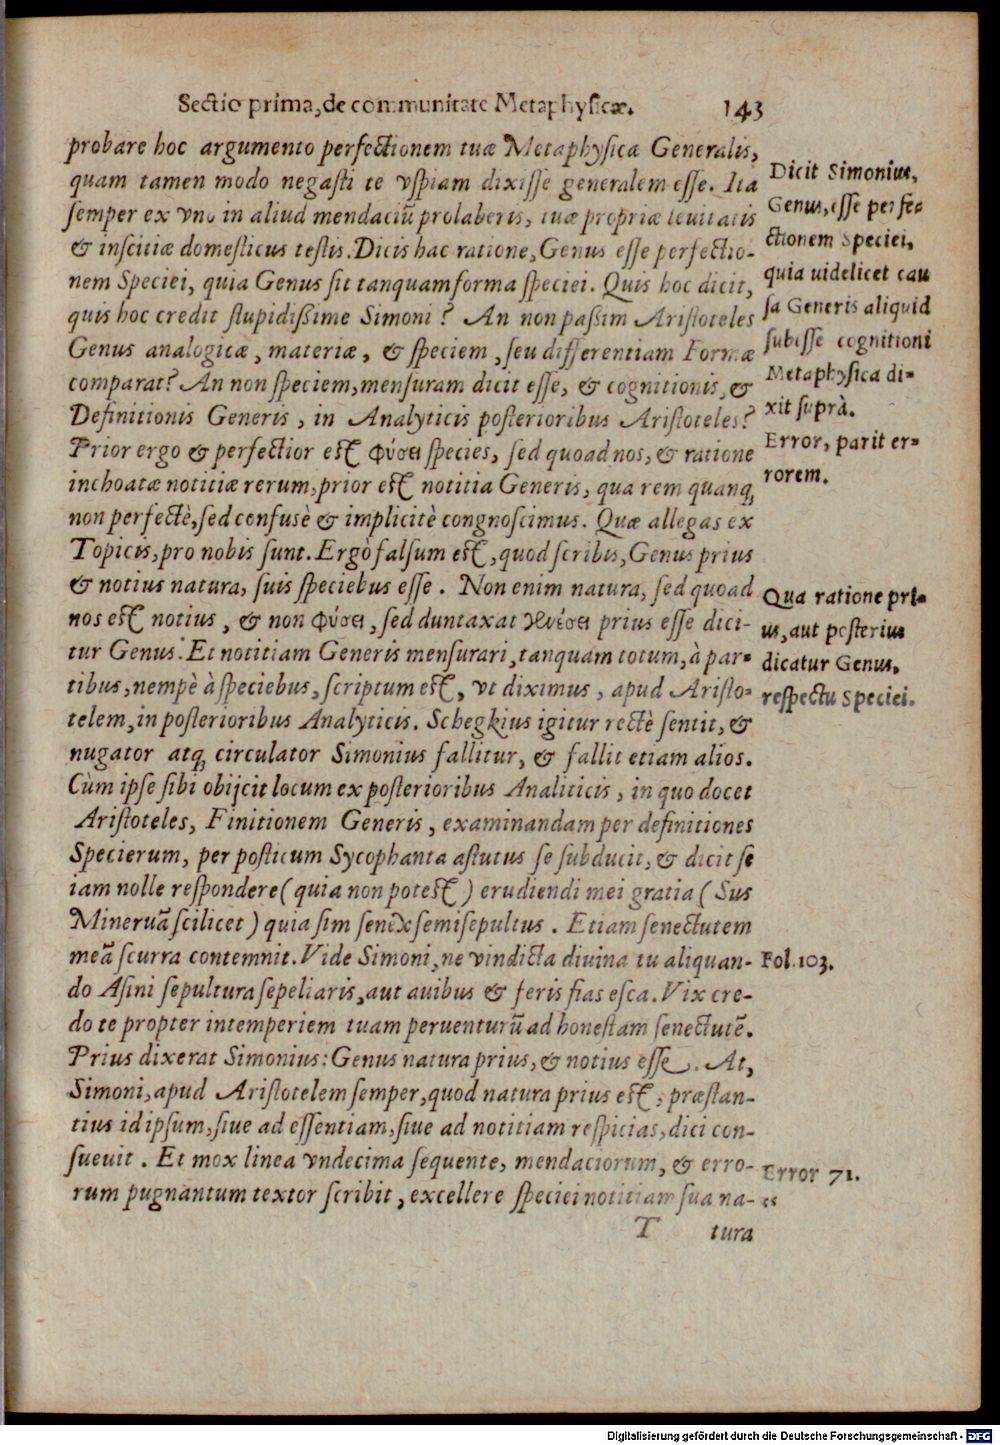 Sectio prima, de communitate Metaphysicæ. 143
probare hoc argumento perfectionem tuæ Metaphysica Generalis,
quam tamen modo negasti te vspiam dixisse generalem esse. Ita
semper ex vno in aliud mendaciũ prolaberis, tuæ propriæ leuitatis
& inscitiæ domesticus testis. Dicis hac ratione, Genus esse perfectio-
nem Speciei, quia Genus sit tanquam forma speciei. Quis hoc dicit,
quis hoc credit stupidißime Simoni? An non paßim Aristoteles
Genus analogicæ, materiæ, & speciem, seu differentiam Formæ
comparat? An non speciem, mensuram dicit esse, & cognitionis, &
Definitionis Generis, in Analyticis posterioribus Aristoteles?
Prior ergo & perfectior est φύσει species, sed quoad nos, & ratione
inchoatæ notitiæ rerum, prior est notitia Generis, qua rem quanq;
non perfectè, sed confusè & implicitè congnoscimus. Quæ allegas ex
Topicis, pro nobis sunt. Ergò falsum est, quod scribis, Genus prius
& notius natura, suis speciebus esse. Non enim natura, sed quoad
nos est notius, & non φύσει, sed duntaxat γενέσει prius esse dici-
tur Genus. Et notitiam Generis mensurari, tanquam totum, à par-
tibus, nempè à speciebus, scriptum est, vt diximus, apud Aristo-
telem, in posterioribus Analyticis. Schegkius igitur rectè sentit, &
nugator atq; circulator Simonius fallitur, & fallit etiam alios.
Cùm ipse sibi obijcit locum ex posterioribus Analiticis, in quo docet
Aristoteles, Finitionem Generis, examinandam per definitiones
Specierum, per posticum Sycophanta astutus se subducit, & dicit se
iam nolle respondere (quia non potest) erudiendi mei gratia (Sus
Mineruã scilicet) quia sim senex semisepultus. Etiam senectutem
meã scurra contemnit. Vide Simoni, ne vindicta diuina tu aliquan-
do Asini sepultura sepeliaris, aut auibus & feris fias esca. Vix cre-
do te propter intemperiem tuam peruenturũ ad honestam senectutẽ.
Prius dixerat Simonius: Genus natura prius, & notius esse. At,
Simoni, apud Aristotelem semper, quod natura prius est, præstan-
tius id ipsum, siue ad essentiam, siue ad notitiam respicias, dici con-
sueuit. Et mox linea vndecima sequente, mendaciorum, & erro-
rum pugnantum textor scribit, excellere speciei notitiam sua na-
T tura
Dicit Simonius,
Genus, esse perfe-
ctionem Speciei,
quia uidelicet cau
sa Generis aliquid
subesse cognitioni
Metaphysica di-
xit suprà.
Error, parit er-
rorem.
Qua ratione pri-
us, aut posterius
dicatur Genus,
respectu Speciei.
Fol. 103.
Error 71.
"
Digitalisierung gefördert durch die Deutsche Forschungsgemeinschaft - DFG